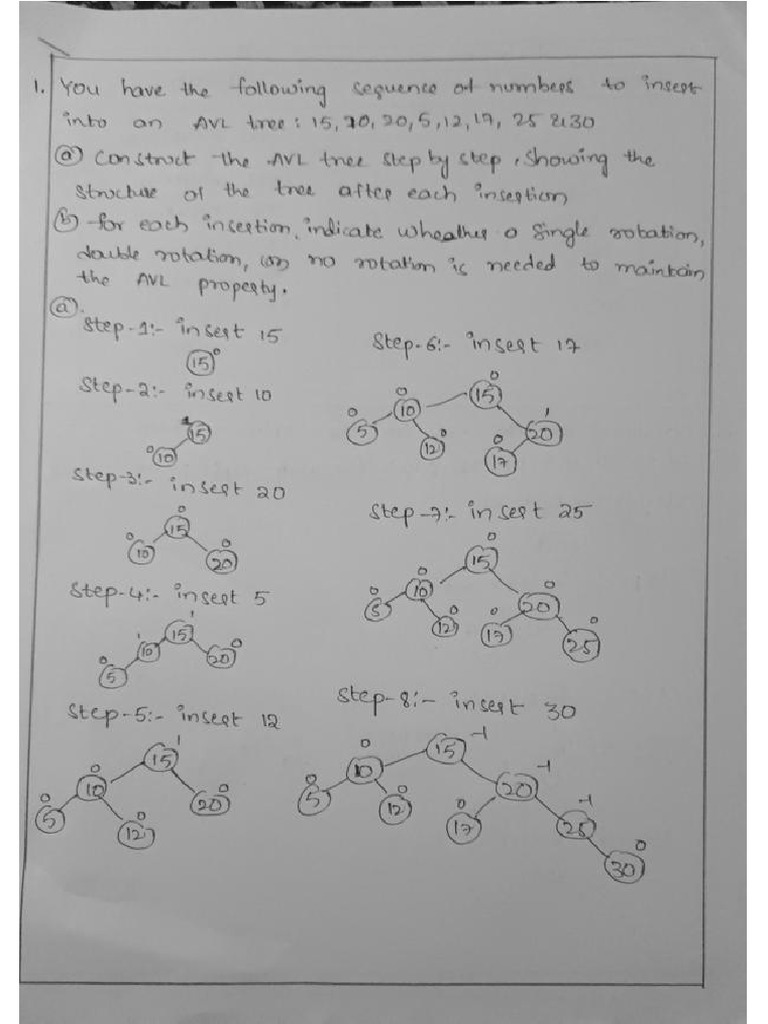 1. You have the following sequence of numbers to insert
into an AVL tree : 15, 10, 20, 5, 12, 17, 25 & 30
(a) Construct the AVL tree step by step, showing the
structure of the tree after each insertion
(b) for each insertion, indicate wheather a single rotation,
double rotation, (or) no rotation is needed to maintain
the AVL property.
(a).
Step-1:- insert 15
15 0
Step-2:- insert 10
15
0 10
Step-3:- insert 20
0
15
0 10 0 20
Step-4:- insert 5
1 10 1 15
0 5 20 0
Step-5:- insert 12
15 1
0 10
0 5 12 0 20 0
Step-6:- insert 17
0 10 0 15
0 5 12 0 0 17 20 1
Step-7:- insert 25
0 15
0 10 20 0
0 5 12 0 0 17 25 0
Step-8:- insert 30
15 -1
0 10 20 -1
0 5 12 0 0 17 25 -1
30 0